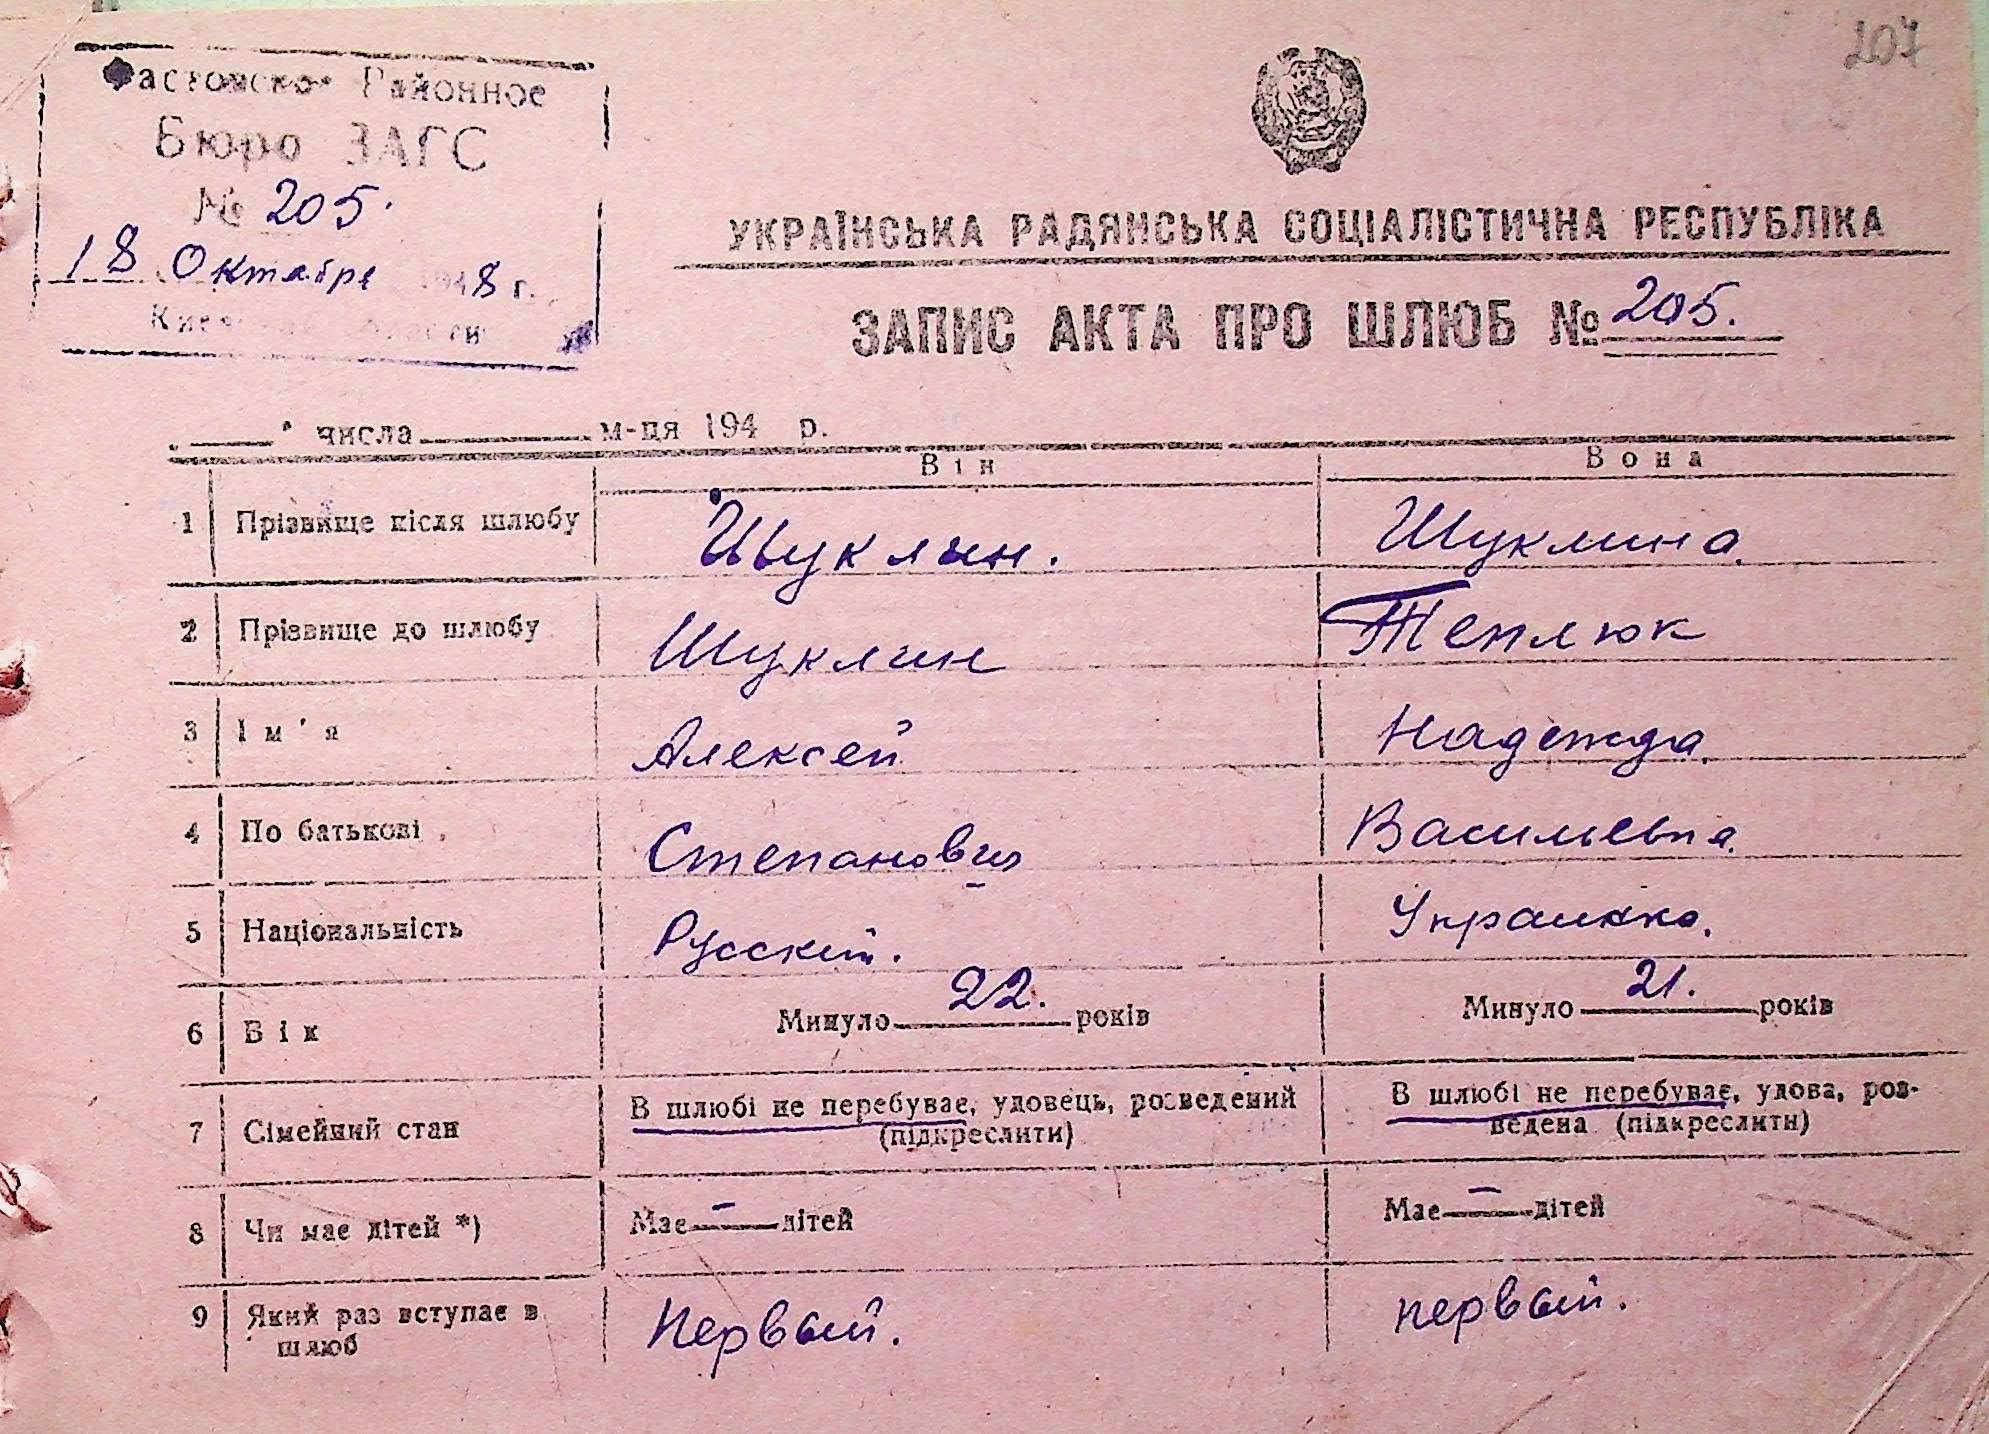 207
Фастовско Районное
Бюро ЗАГС
№ 205.
18 Октября 1948 г.
УКРАЇНСЬКА РАДЯНСЬКА СОЦІАЛІСТИЧНА РЕСПУБЛІКА
ЗАПИС АКТА ПРО ШЛЮБ № 205.
числа м-ця 194 р.
Він Вона
1 Прізвище після шлюбу Шуклин. Шуклина.
2 Прізвище до шлюбу Шуклин Теплюк
3 Ім'я Алексей Надежда.
4 По батькові Степанович Васильевна.
5 Національність Русский. Украинка.
6 Вік Минуло 22. років Минуло 21. років
7 Сімейний стан В шлюбі не перебуває, удовець, розведений (підкреслити) В шлюбі не перебуває, удова, роз-
ведена (підкреслити)
8 Чи має дітей *) Має — дітей Має — дітей
9 Який раз вступає в
шлюб Первый. первый.